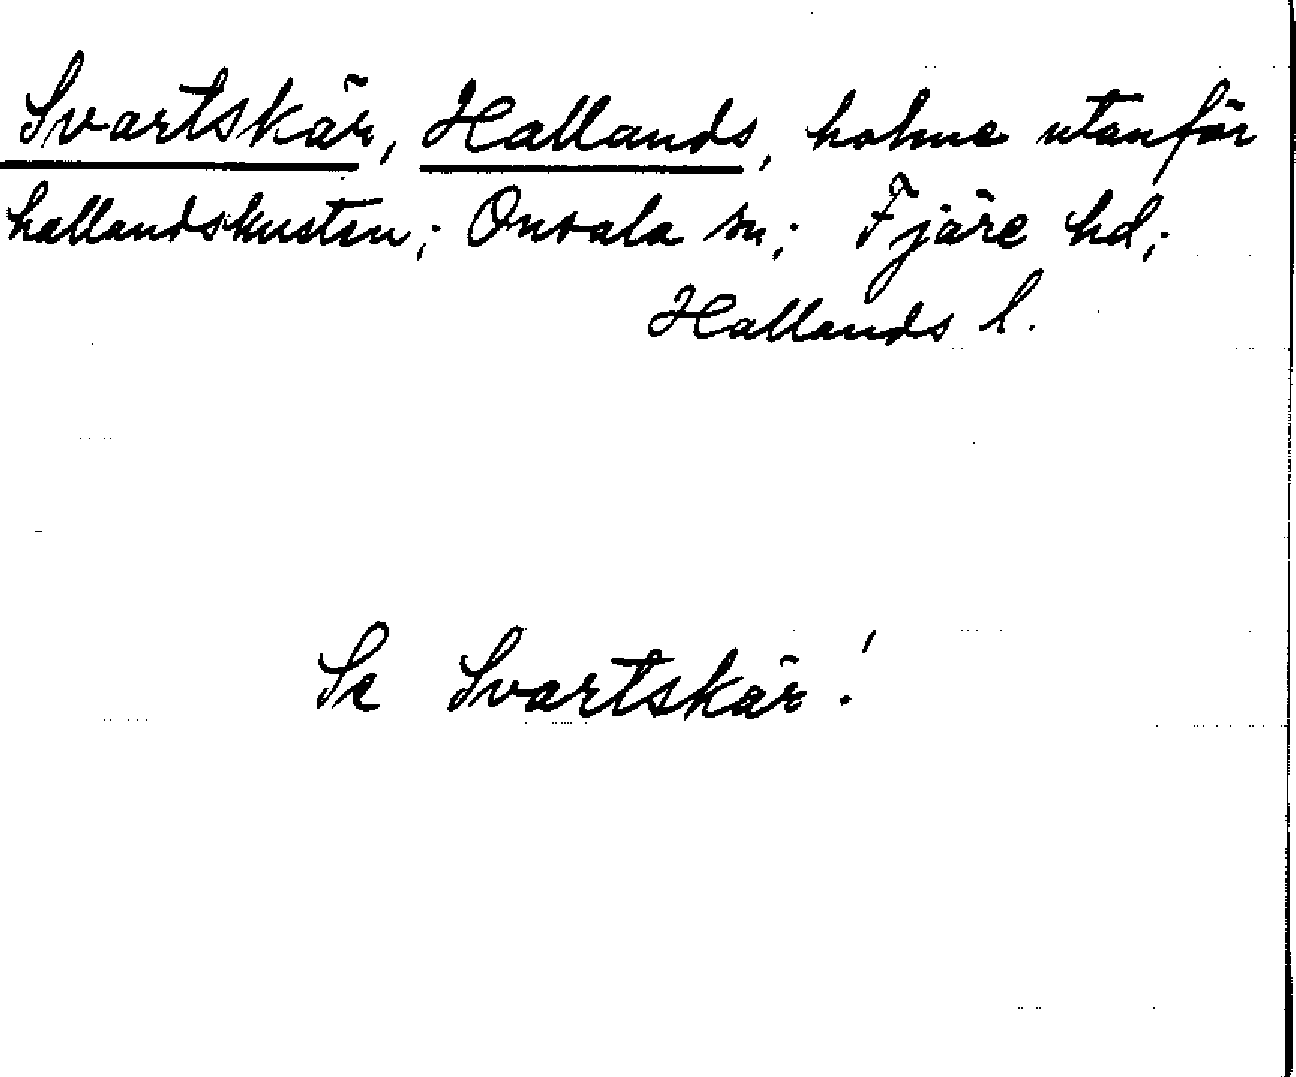 Svartskär, Hallands, holme utanför
hallandskusten; Onsala sn; Fjäre hd;
Hallands l.
Se Svartskär!